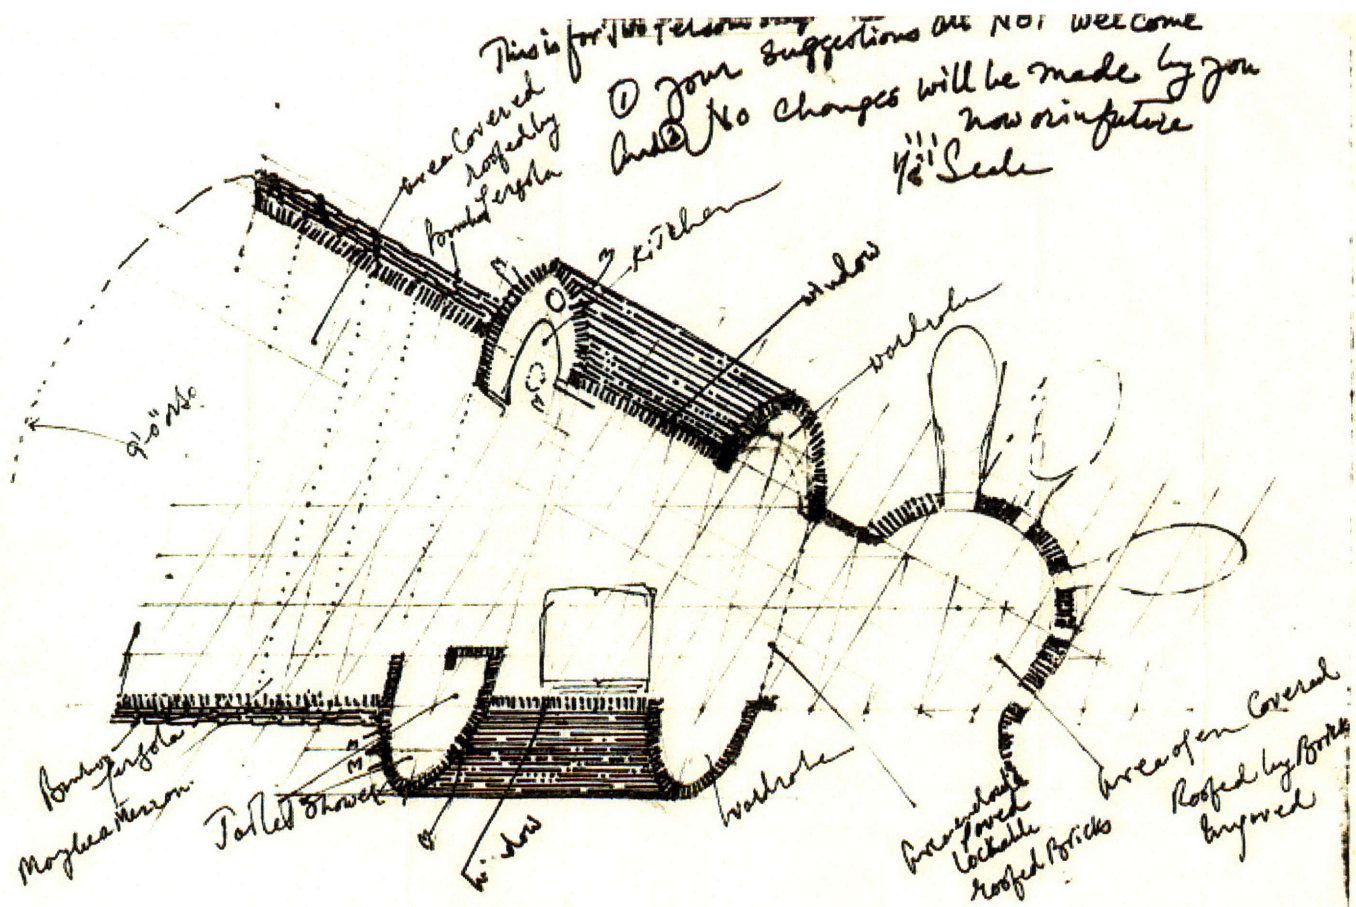 This is for Two Persons only
① Your Suggestions are NOT welcome
And ② No changes will be made by you
now or in future
1/8" Scale
area covered
roofed by
Bamboo Pergola
Kitchen
window
wardrobe
9'-0" or so
Bamboo
Pergola
Maybe a Mezzan.
Toilet Shower
window
wardrobe
Area enclosed
Paved
Lockable
roofed Bricks
Area open Covered
Roofed by Bricks